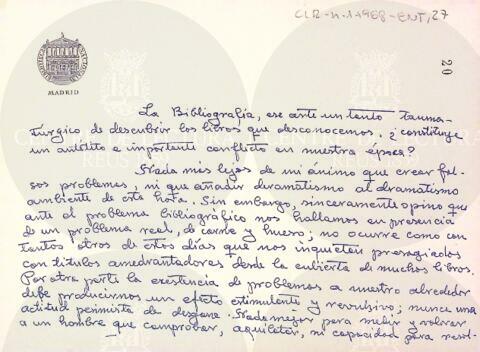 CLR-n.1-1968-ENT, 27
20
MADRID
La Bibliografía, ese arte un tanto tauma-
túrgico de descubrir los libros que desconocemos, ¿constituye
un auténtico e importante conflicto en nuestra época?
Nada más lejos de mi ánimo que crear fal-
sos problemas, ni que añadir dramatismo al dramatismo
ambiente de esta hora. Sin embargo, sinceramente opino que
ante el problema bibliográfico nos hallamos en presencia
de un problema real, de carne y hueso; no ocurre como con
tantos otros de estos días que nos inquietan presagiados
con títulos amedrantadores desde la cubierta de muchos libros.
Por otra parte la existencia de problemas a nuestro alrededor
debe producirnos un efecto estimulante y revulsivo; nunca una
actitud pesimista de desgana. Nada mejor para medir y valorar
a un hombre que comprobar, aquilatar, su capacidad para resol-